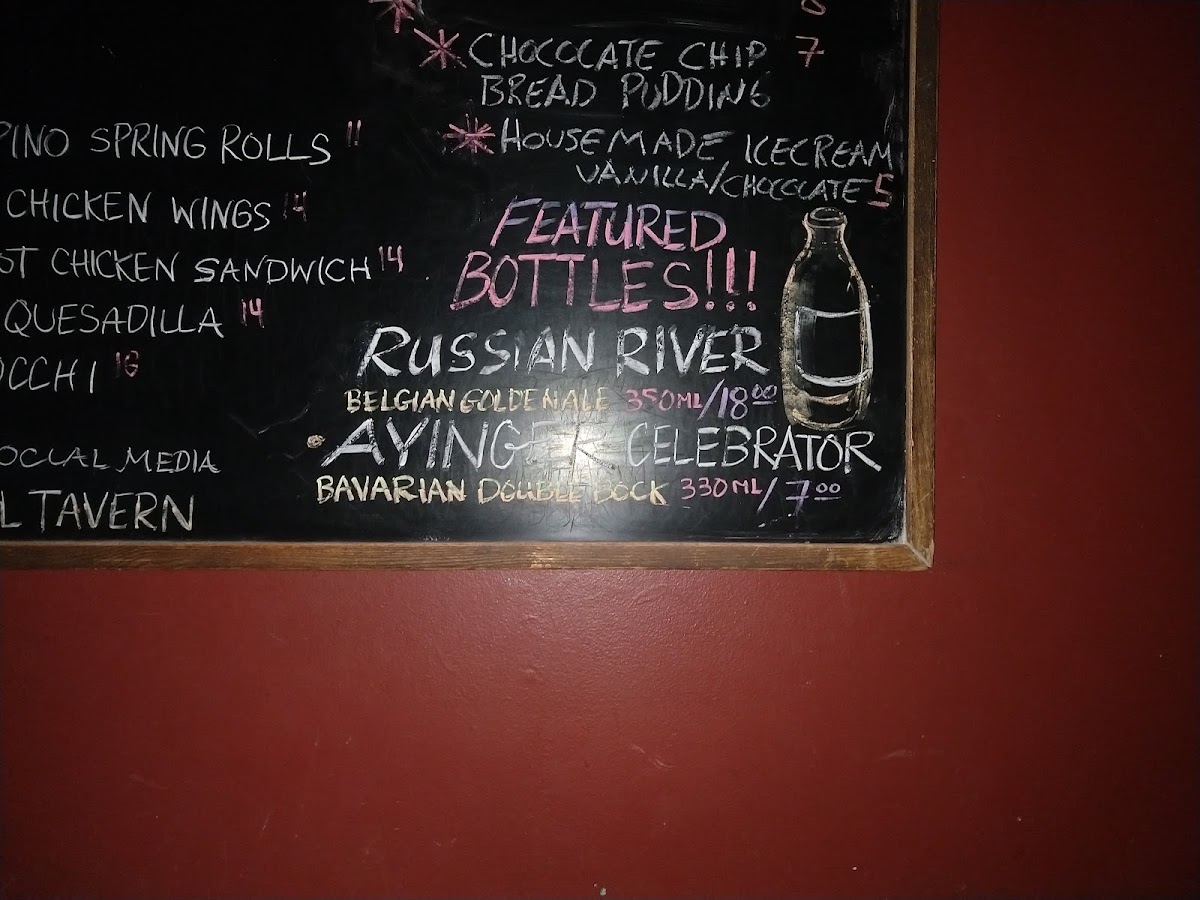 PINO SPRING ROLLS 11
CHICKEN WINGS 14
OT CHICKEN SANDWICH 14
QUESADILLA 14
OCCHI
OCCAL MEDIA
L TAVERN
CHOCOCATE CHIP 7
BREAD PUDDING
HOUSEMADE ICECREAM
VANILLA/CHOCOLATE 5
FEATURED
BOTTLES!!!
RUSSIAN RIVER
BELGIAN GOLDEN ALE 350ML/18.00
AYINGER CELEBRATOR
BAVARIAN DOUBLE BOCK 330ML/7.00